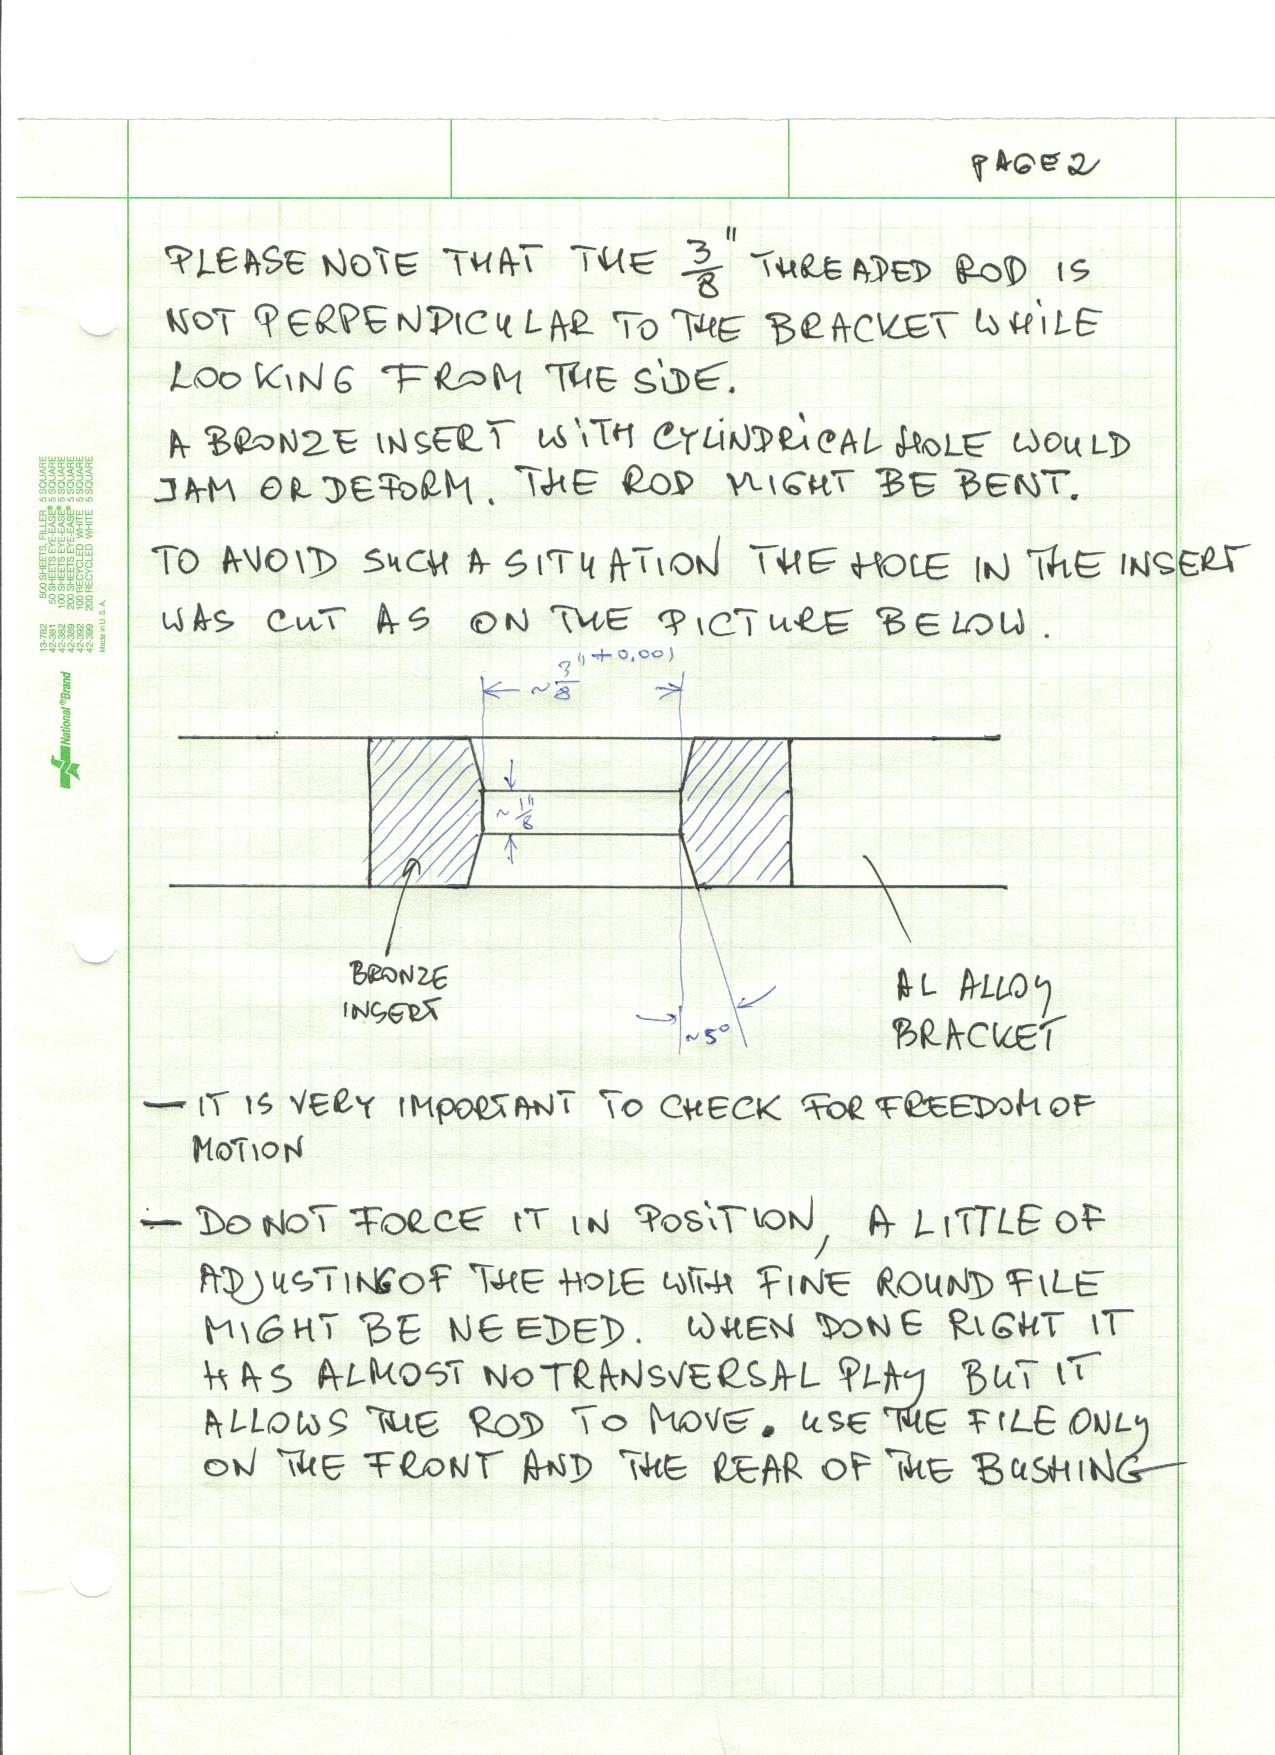 PAGE 2
PLEASE NOTE THAT THE 3/8" THREADED ROD IS
NOT PERPENDICULAR TO THE BRACKET WHILE
LOOKING FROM THE SIDE.
A BRONZE INSERT WITH CYLINDRICAL HOLE WOULD
JAM OR DEFORM. THE ROD MIGHT BE BENT.
TO AVOID SUCH A SITUATION THE HOLE IN THE INSERT
WAS CUT AS ON THE PICTURE BELOW.
~ 3/8" + 0.001
~ 1/8"
BRONZE
INSERT
~5°
AL ALLOY
BRACKET
— IT IS VERY IMPORTANT TO CHECK FOR FREEDOM OF
MOTION
— DO NOT FORCE IT IN POSITION, A LITTLE OF
ADJUSTING OF THE HOLE WITH FINE ROUND FILE
MIGHT BE NEEDED. WHEN DONE RIGHT IT
HAS ALMOST NO TRANSVERSAL PLAY BUT IT
ALLOWS THE ROD TO MOVE. USE THE FILE ONLY
ON THE FRONT AND THE REAR OF THE BUSHING
13-782 500 SHEETS, FILLER 5 SQUARE
42-381 50 SHEETS EYE-EASE® 5 SQUARE
42-382 100 SHEETS EYE-EASE® 5 SQUARE
42-389 200 SHEETS EYE-EASE® 5 SQUARE
42-392 100 RECYCLED WHITE 5 SQUARE
42-399 200 RECYCLED WHITE 5 SQUARE
Made in U.S.A.
National®Brand